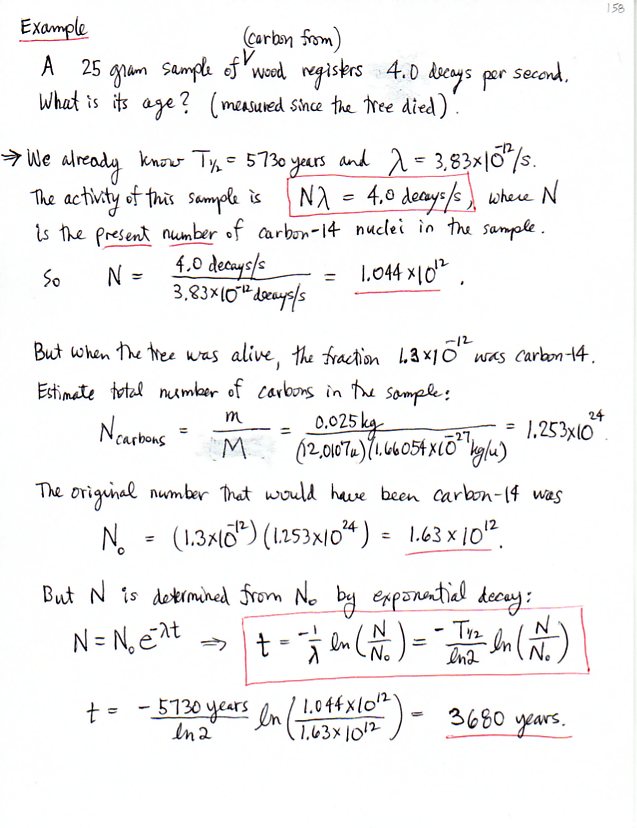 158
Example
(carbon from)
A 25 gram sample of wood registers 4.0 decays per second.
What is its age? (measured since the tree died).
⇒ We already know T½ = 5730 years and λ = 3.83×10⁻¹²/s.
The activity of this sample is Nλ = 4.0 decays/s, where N
is the present number of carbon-14 nuclei in the sample.
So N = 4.0 decays/s / 3.83×10⁻¹² decays/s = 1.044×10¹².
But when the tree was alive, the fraction 1.3×10⁻¹² was carbon-14.
Estimate total number of carbons in the sample:
N carbons = m / M = 0.025 kg / (12.0107u)(1.66054×10⁻²⁷ kg/u) = 1.253×10²⁴.
The original number that would have been carbon-14 was
N₀ = (1.3×10⁻¹²)(1.253×10²⁴) = 1.63×10¹².
But N is determined from N₀ by exponential decay:
N = N₀e^-λt ⇒ t = -1/λ ln(N/N₀) = -T½/ln2 ln(N/N₀)
t = -5730 years / ln2 ln(1.044×10¹² / 1.63×10¹²) = 3680 years.